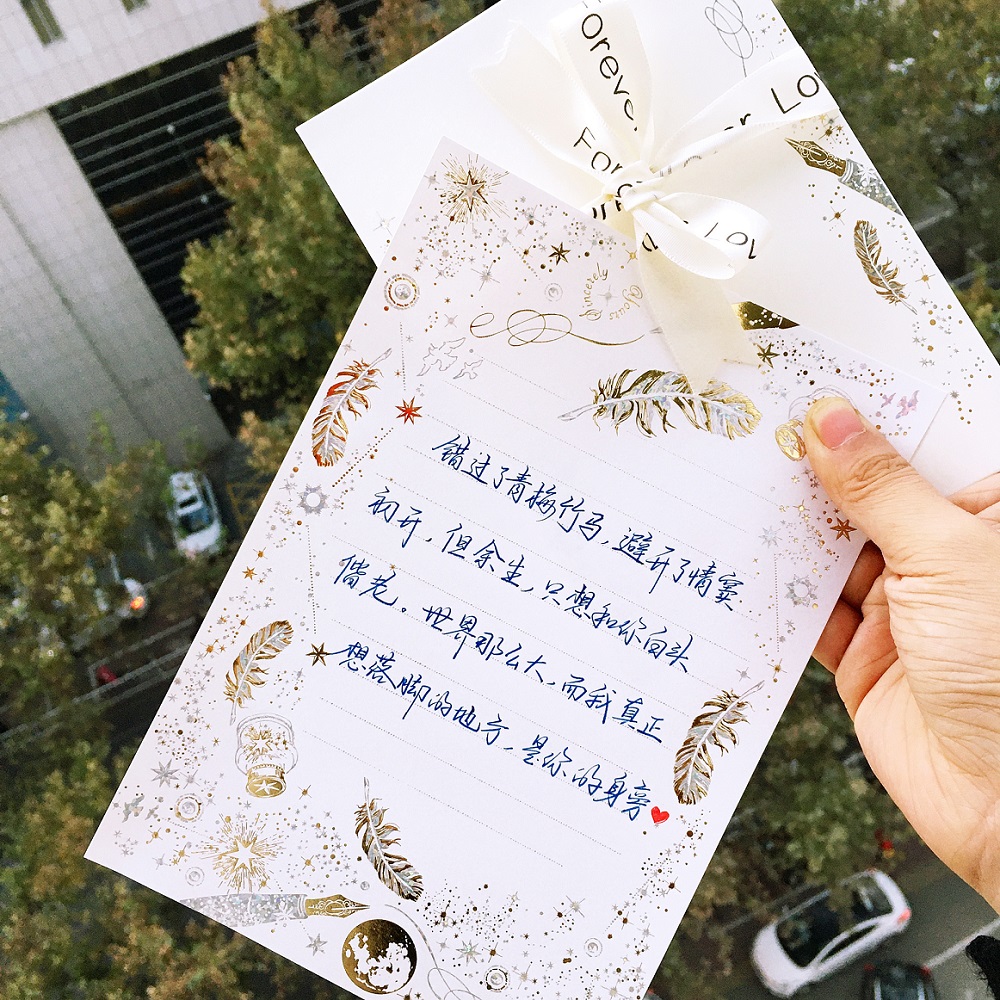 Forever
Fore
or Lov
Lov
Yours
Sincerely
错过了青梅竹马，避开了情窦
初开，但余生，只想和你白头
偕老。世界那么大，而我真正
想落脚的地方，是你的身旁